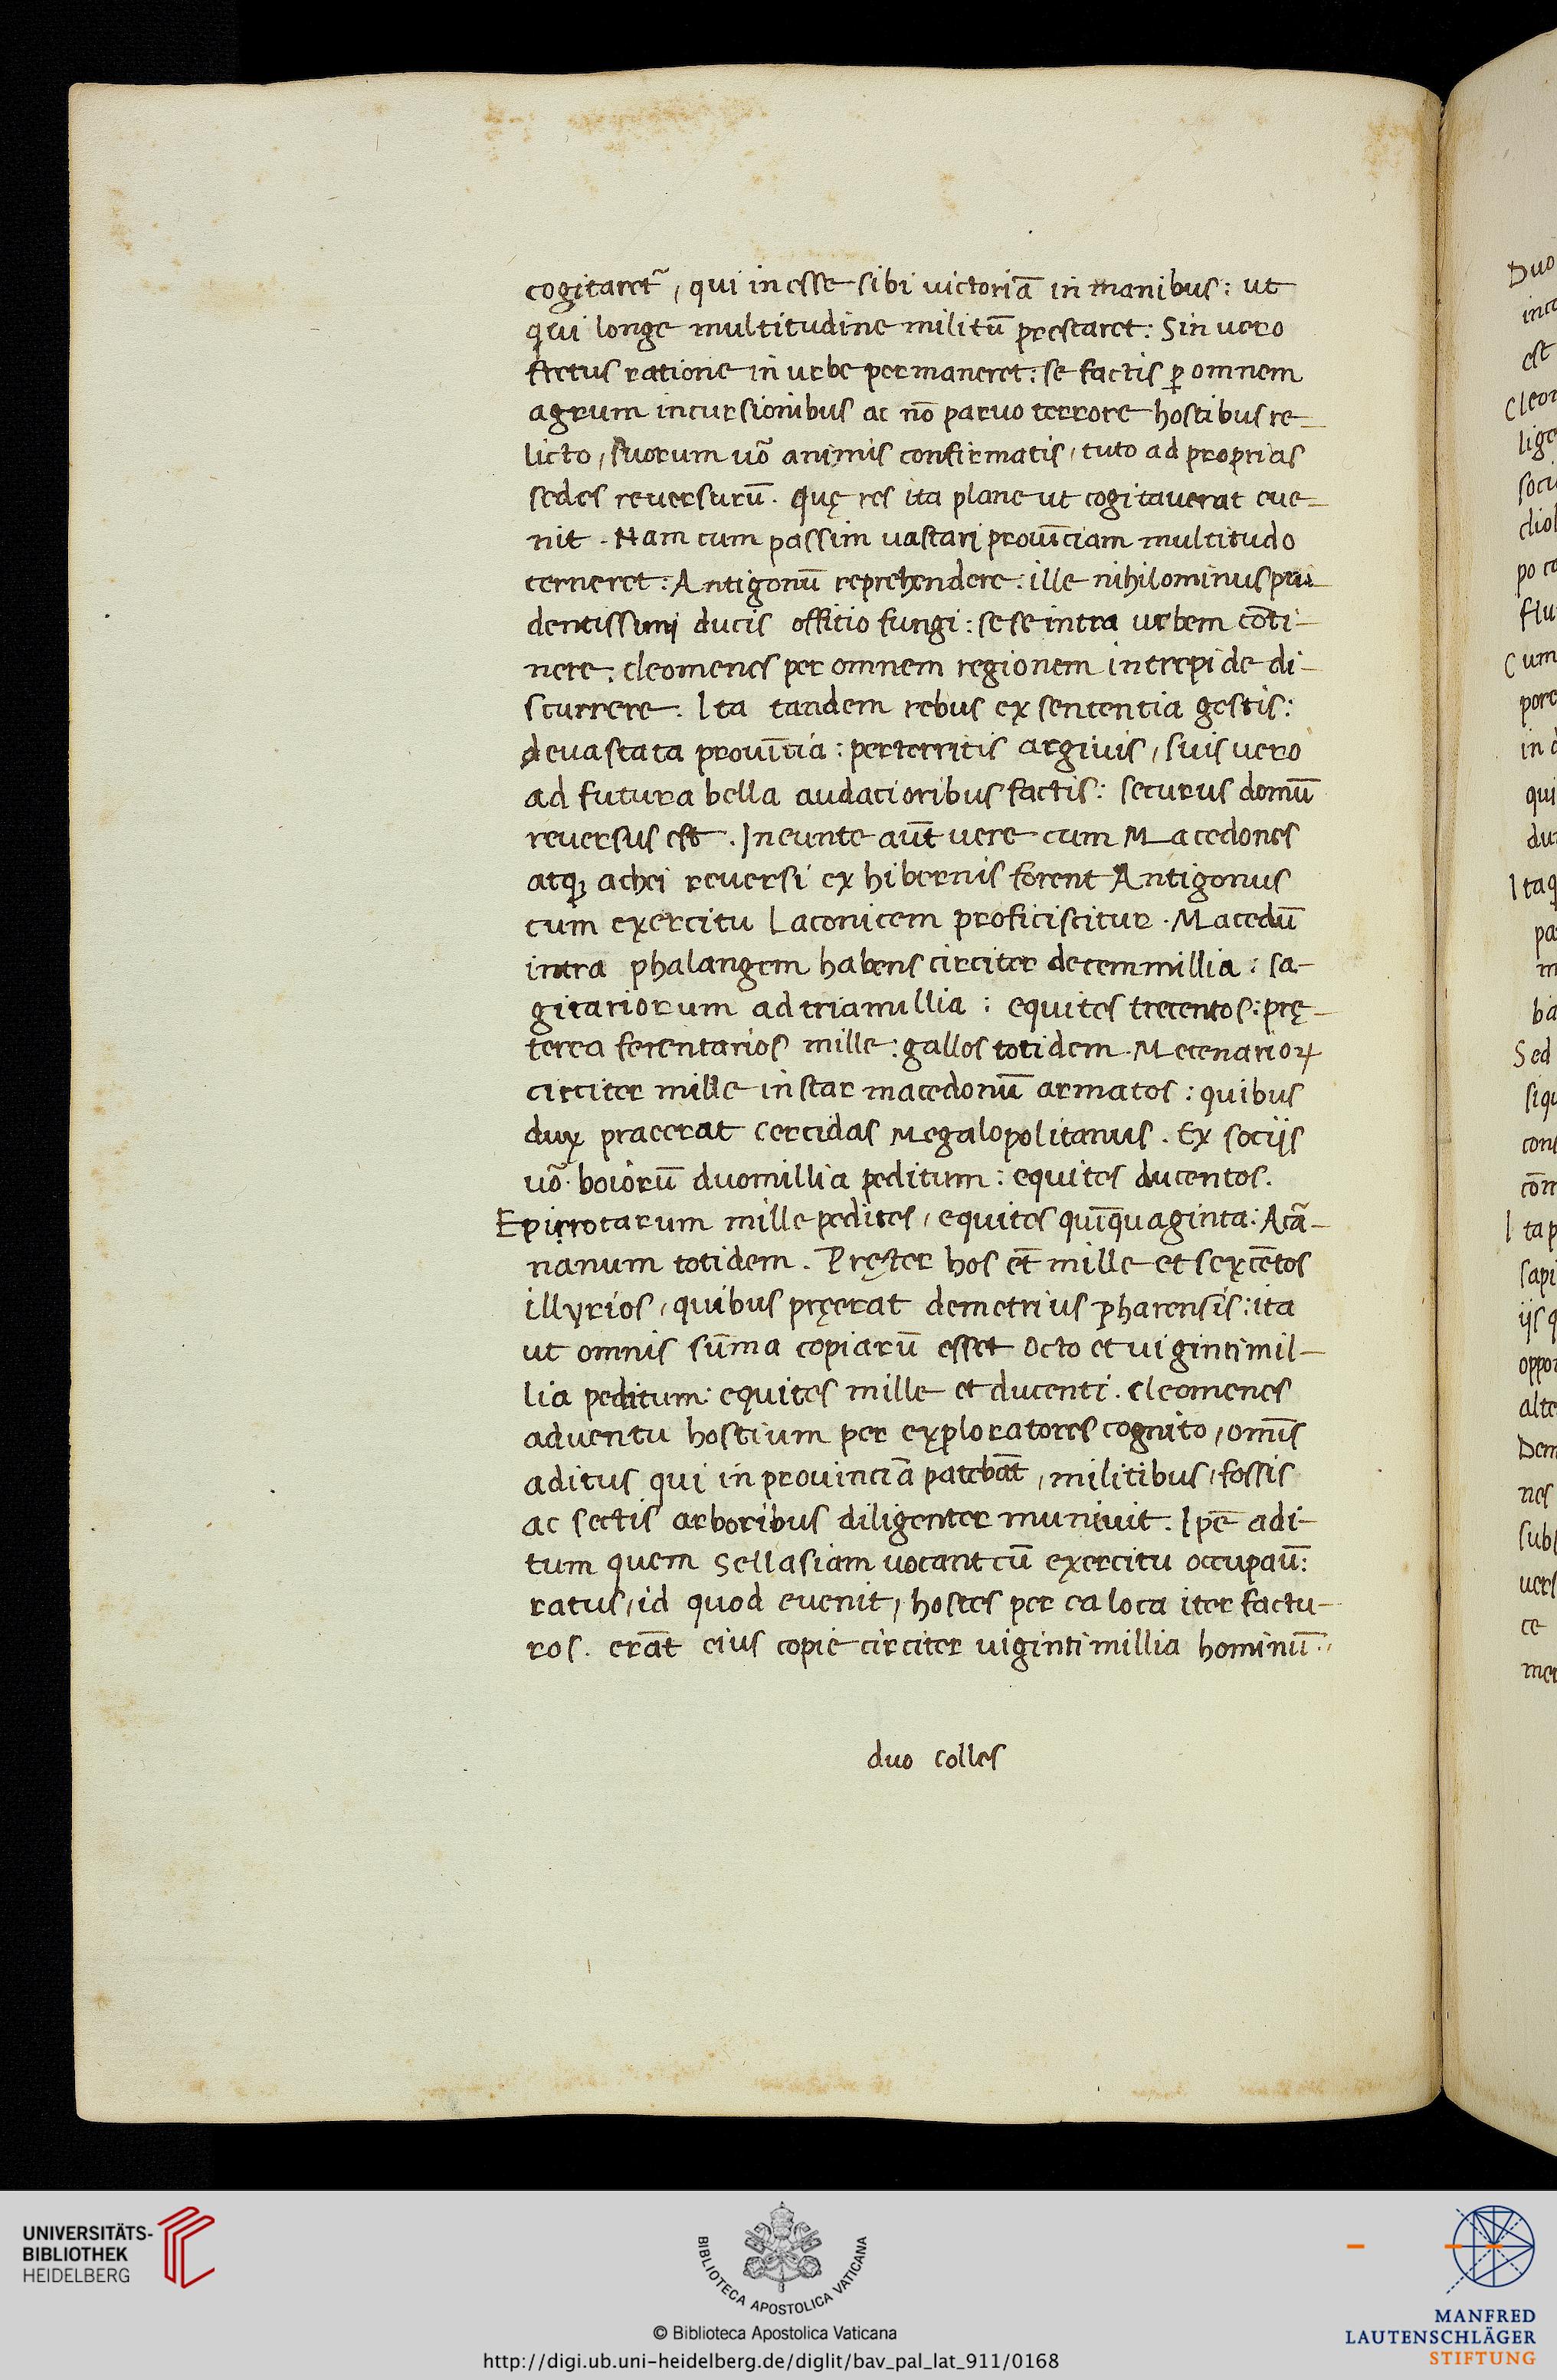 cogitaret᷑, qui in esse sibi victoriā in manibus: ut
qui longe multitudine militū prestaret: Sin vero
fretus ratione in urbe permaneret: se factis ꝑ omnem
agrum incursionibus ac nō paruo terrore hostibus re-
licto, suorum uō animis confirmatis, tuto ad proprias
sedes reuersurū. Quę res ita plane ut cogitaverat eue-
nit. Nam cum passim vastari prouīciam multitudo
cerneret: Antigonū reprehendere: ille nihilominus pru-
dentissimi ducis offitio fungi: sese intra urbem cōti-
nere: cleomenes per omnem regionem intrepide di-
scurrere. Ita tandem rebus ex sententia gestis:
devastata prouītia: perterritis argivis, suis vero
ad futura bella audatioribus factis: securus domū
reversus est. Ineunte aūt vere cum Macedones
atqꝫ achei reversi ex hibernis forent Antigonus
cum exercitu Laconicem proficiscitur. Macedū
intra phalangem habens circiter decem millia: sa-
gitariorum ad tria millia: equites trecentos: prę-
terea ferentarios mille: gallos totidem. Mercenarioꝝ
circiter mille instar macedonū armatos: quibus
dux praeerat Cercidas Megalopolitanus. Ex sociis
uō. boiorū duo millia peditum: equites ducentos.
Epirotarum mille pedites, equites quīquaginta: Acā-
nanum totidem. Pręter hos et̄ mille et sexcētos
illyrios, quibus pręerat demetrius pharensis: ita
ut omnis sūma copiarū esset octo et viginti mil-
lia peditum: equites mille et ducenti. Cleomenes
adventu hostium per exploratores cognito, omīs
aditus qui in provinciā patebāt, militibus, fossis
ac sectis arboribus diligenter munivit. Ipē adi-
tum quem Sellasiam vocant cū exercitu occupaū:
ratus, id quod evenit, hostes per ea loca iter factu-
ros. erāt eius copie circiter viginti millia hominū.
duo colles
UNIVERSITÄTS-
BIBLIOTHEK
HEIDELBERG
BIBLIOTECA APOSTOLICA VATICANA
© Biblioteca Apostolica Vaticana
http://digi.ub.uni-heidelberg.de/diglit/bav_pal_lat_911/0168
MANFRED
LAUTENSCHLÄGER
STIFTUNG